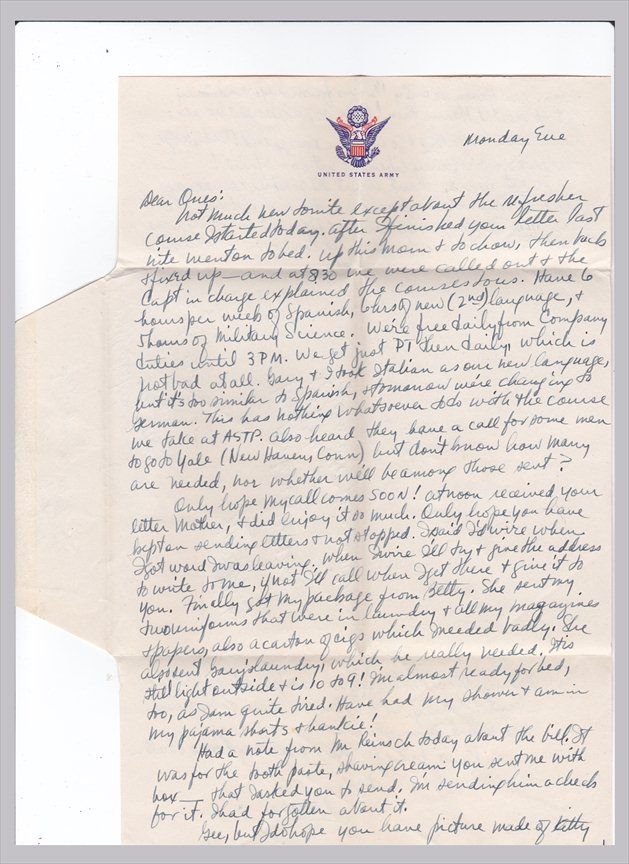 Monday Eve
UNITED STATES ARMY
Dear Ones:
Not much new tonite except about the refresher
course I started today. After I finished your letter last
nite went on to bed. Up this morn & to chow, then back
& fixed up — and at 8:30 we were called out & the
Capt in charge explained the courses to us. Have 6
hours per week of Spanish, 6 hrs of new (2nd) language, &
5 hours of Military Science. We're free daily from Company
duties until 3 PM. We get just PT then daily, which is
not bad at all. Gary & I took Italian as our new language,
but it's too similar to Spanish, & tomorrow we're changing to
German. This has nothing whatsoever to do with the course
we take at ASTP. Also heard they have a call for some men
to go to Yale (New Haven, Conn) but don't know how many
are needed, nor whether we'll be among those sent?
Only hope my call comes soon! At noon received your
letter Mother, & did enjoy it so much. Only hope you have
kept on sending letters & not stopped. I said I'd wire when
I got word I was leaving. When I wire I'll try & give the address
to write to me, if not I'll call when I get there & give it to
you. Finally got my package from Betty. She sent my
two uniforms that were in laundry & all my magazines
& papers, also a carton of cigs which I needed badly. She
also sent Gary's laundry, which he really needed. It is
still light outside & is 10 to 9! I'm almost ready for bed,
too, as I am quite tired. Have had my shower & am in
my pajama shorts & hankie!
Had a note from Mr. Reinsch today about the bill. It
was for the tooth paste, shaving cream you sent me with
box — that I asked you to send. I'm sending him a check
for it. I had forgotten about it.
Gee, but I do hope you have picture made of Kitty